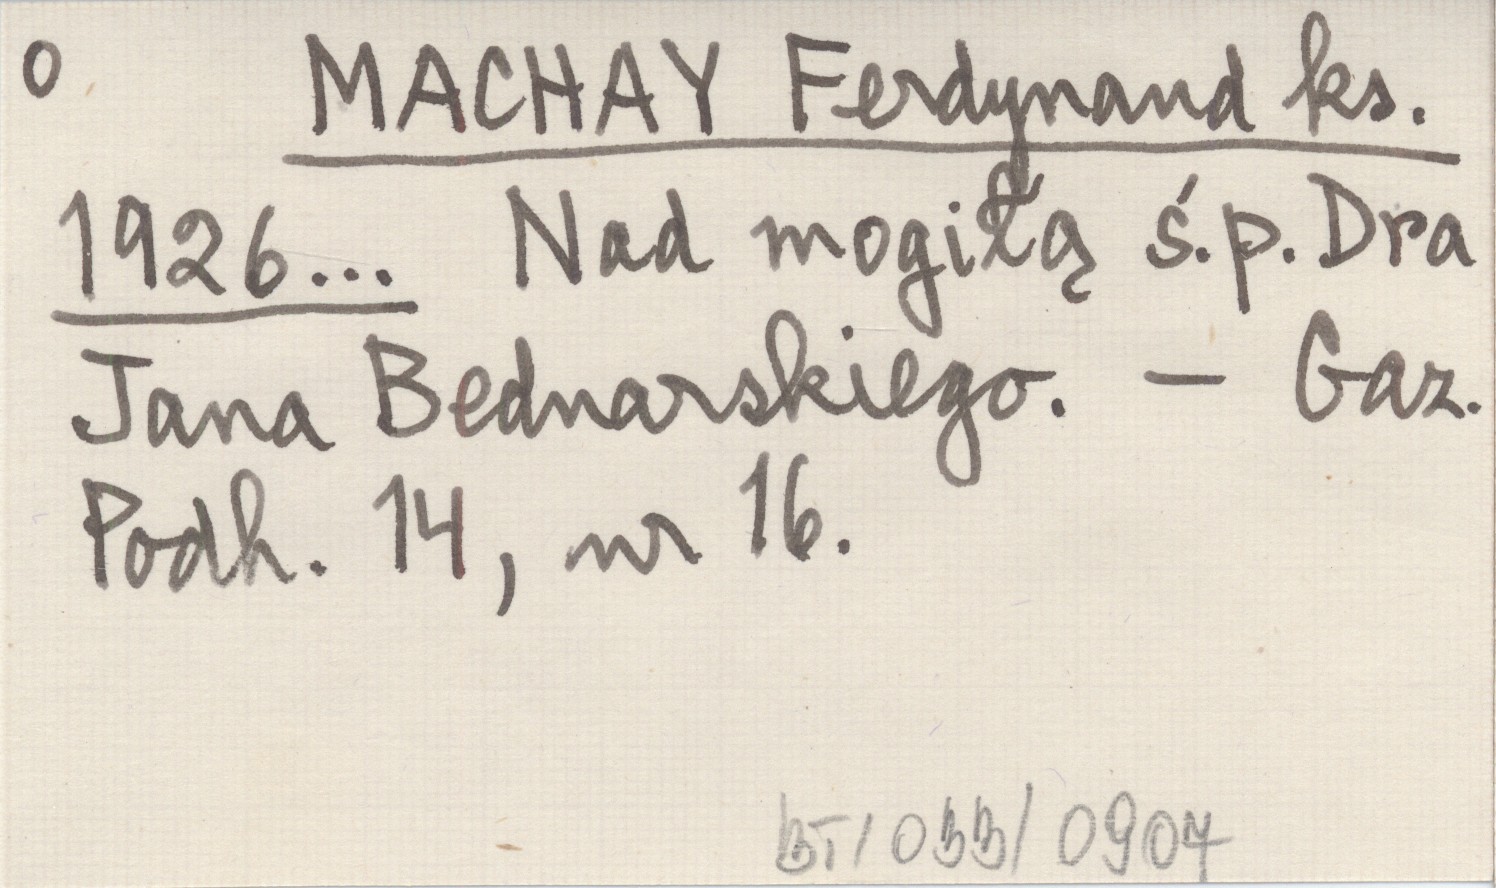 O MACHAY Ferdynand ks.
1926... Nad mogiłą ś.p. Dra
Jana Bednarskiego. — Gaz.
Podh. 14, nr 16.
BT/033/0907